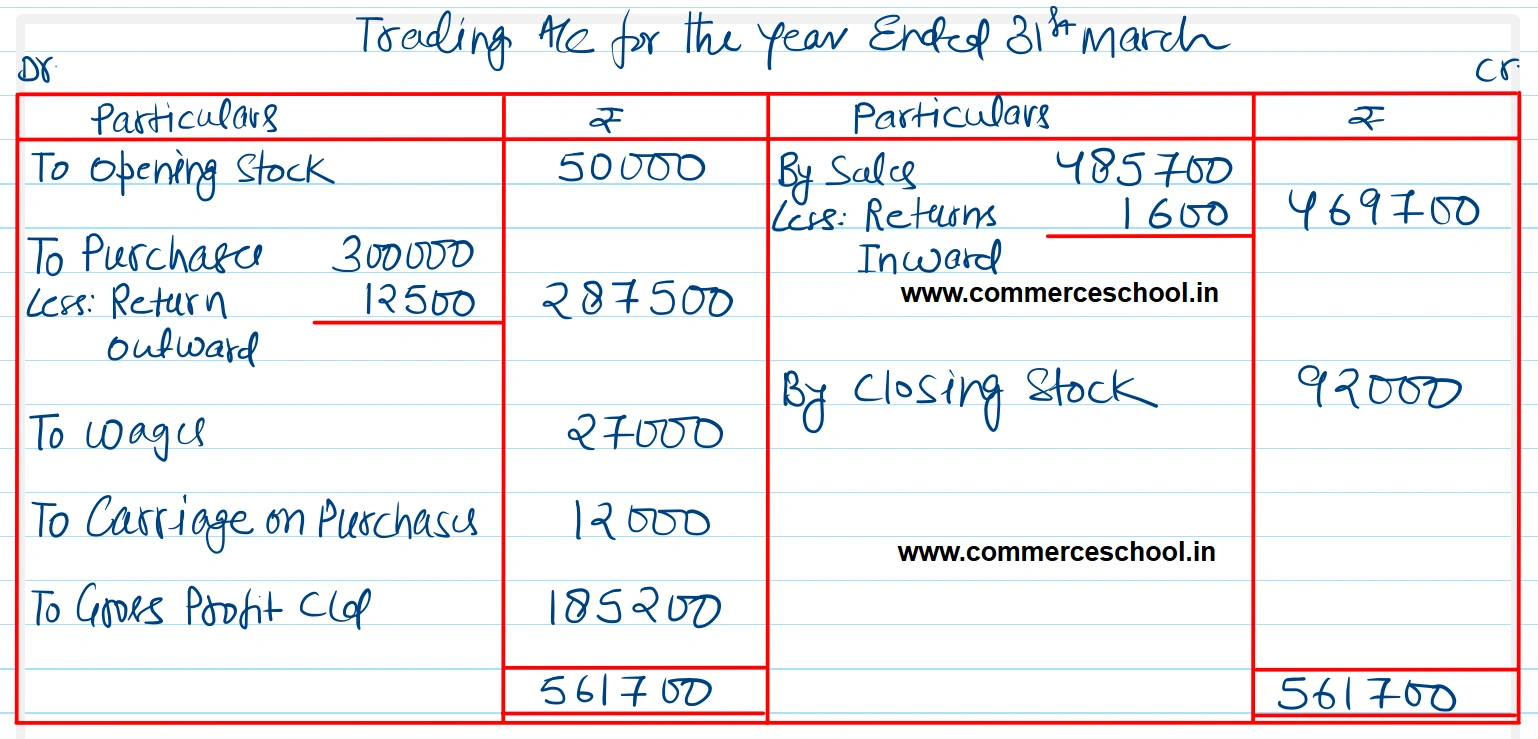 Trading A/c for the year Ended 31st March
Dr. Cr.
Particulars ₹ Particulars ₹
To Opening Stock 50000 By Sales 485700
Less: Returns 1600 469700
To Purchases 300000 Inward
Less: Return 12500 287500 www.commerceschool.in
outward
By Closing Stock 92000
To wages 27000
To Carriage on Purchases 12000
www.commerceschool.in
To Gross Profit C/d 185200
561700 561700